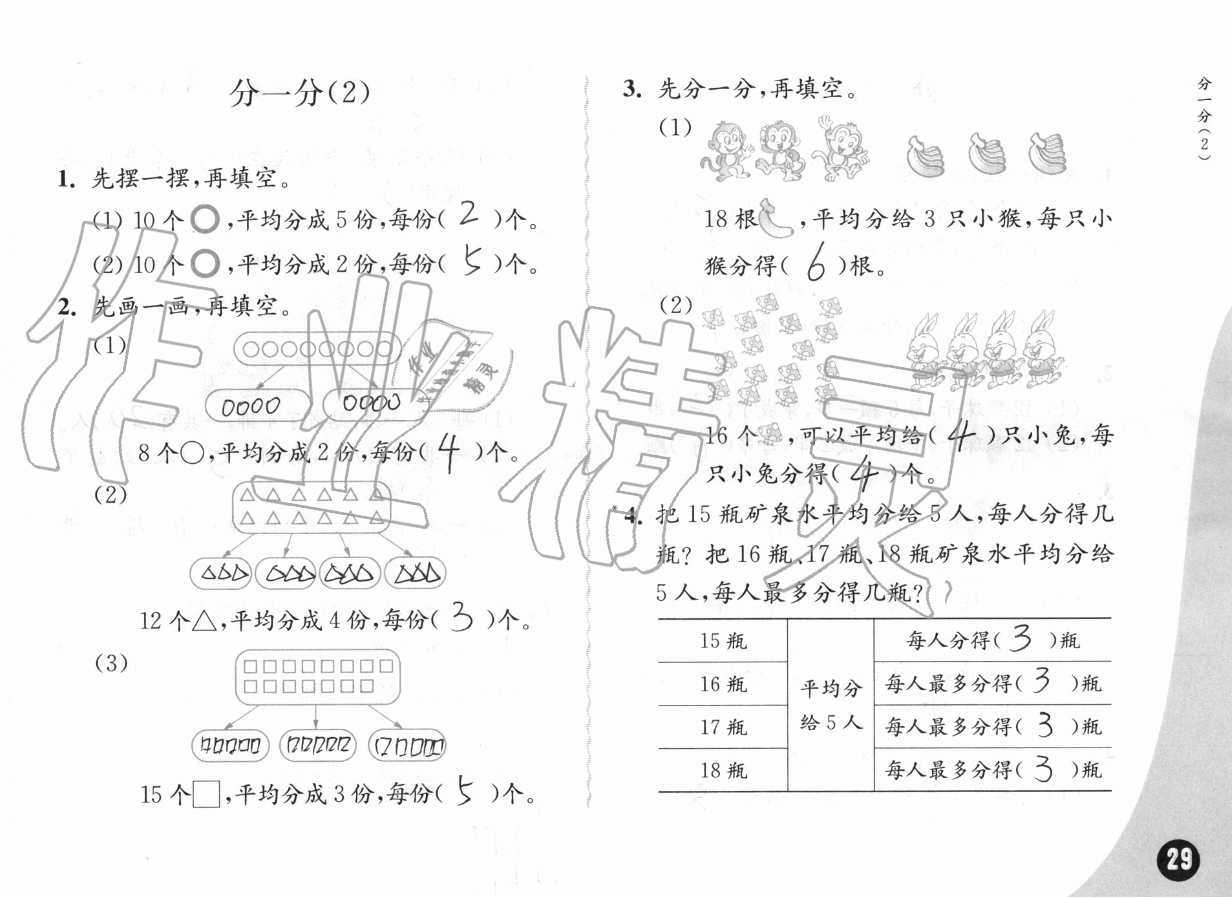 分一分(2)
1. 先摆一摆,再填空。
(1) 10 个○,平均分成 5 份,每份( 2 )个。
(2) 10 个○,平均分成 2 份,每份( 5 )个。
2. 先画一画,再填空。
(1)
8 个○,平均分成 2 份,每份( 4 )个。
(2)
12 个△,平均分成 4 份,每份( 3 )个。
(3)
15 个□,平均分成 3 份,每份( 5 )个。
3. 先分一分,再填空。
(1)
18 根 ,平均分给 3 只小猴,每只小
猴分得( 6 )根。
(2)
16 个 ,可以平均给( 4 )只小兔,每
只小兔分得( 4 )个。
*4. 把 15 瓶矿泉水平均分给 5 人,每人分得几
瓶? 把 16 瓶、17 瓶、18 瓶矿泉水平均分给
5 人,每人最多分得几瓶?
15 瓶 每人分得( 3 )瓶
16 瓶 每人最多分得( 3 )瓶
平均分
给 5 人
17 瓶 每人最多分得( 3 )瓶
18 瓶 每人最多分得( 3 )瓶
分一分(2)
29
作业精灵
作业
精灵